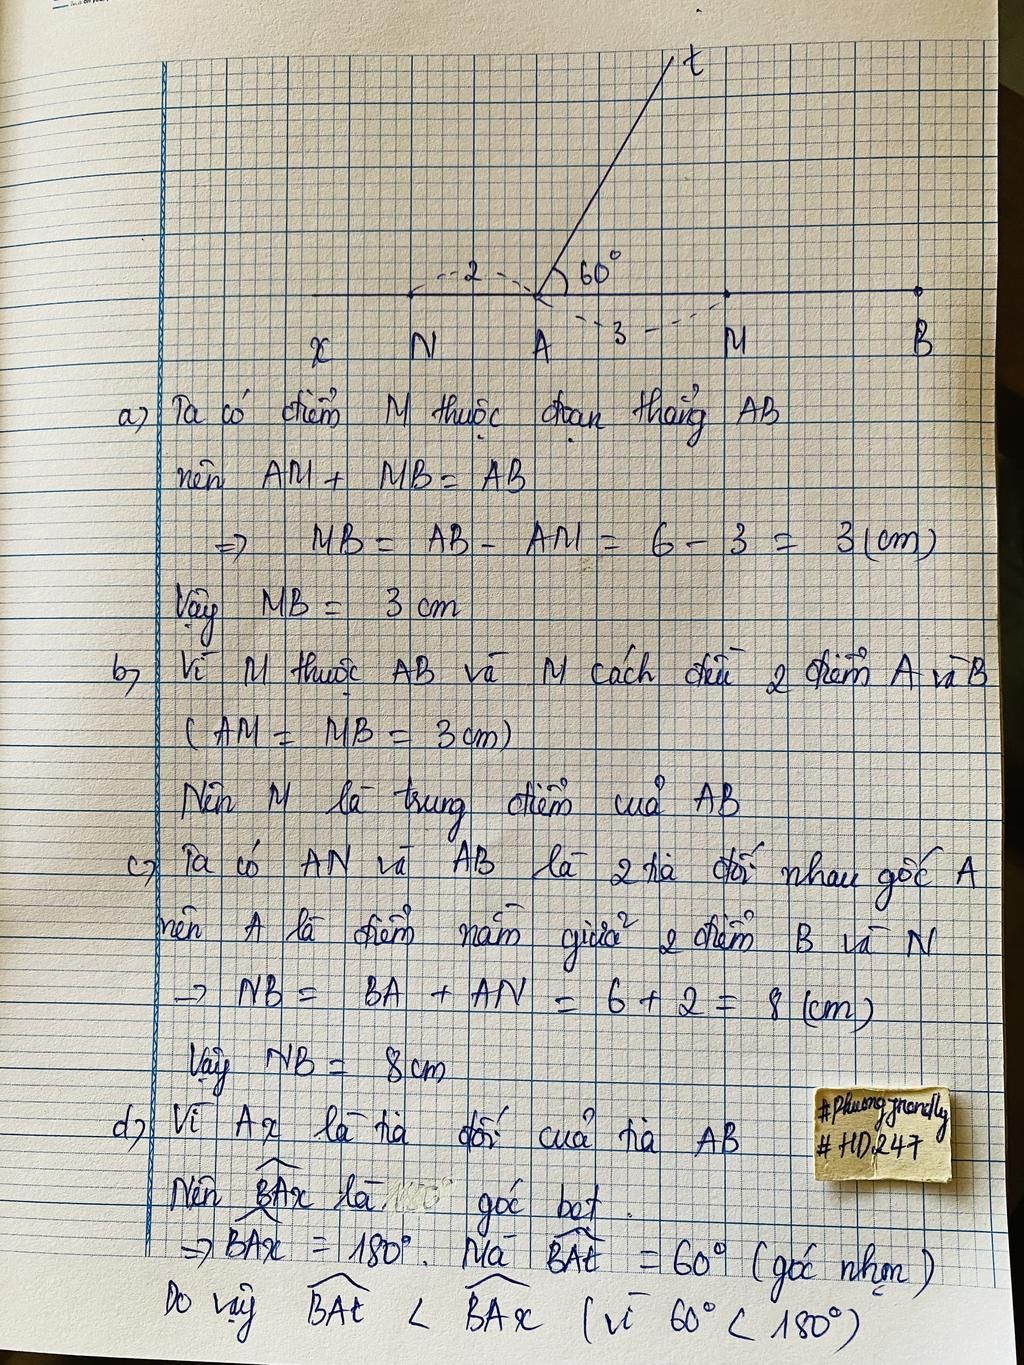 t
2
60°
3
x N A M B
a) Ta có điểm M thuộc đoạn thẳng AB
nên AM + MB = AB
=> MB = AB - AM = 6 - 3 = 3 (cm)
Vậy MB = 3 cm
b) Vì M thuộc AB và M cách đều 2 điểm A và B
( AM = MB = 3 cm)
Nên M là trung điểm của AB
c) Ta có AN và AB là 2 tia đối nhau gốc A
nên A là điểm nằm giữa 2 điểm B và N
-> NB = BA + AN = 6 + 2 = 8 (cm)
Vậy NB = 8 cm
#phuongfriendly
#HD247
d) Vì Ax là tia đối của tia AB
Nên BAx là góc bẹt.
=> BAx = 180°. Mà BAt = 60° (góc nhọn)
Do vậy BAt < BAx (vì 60° < 180°)